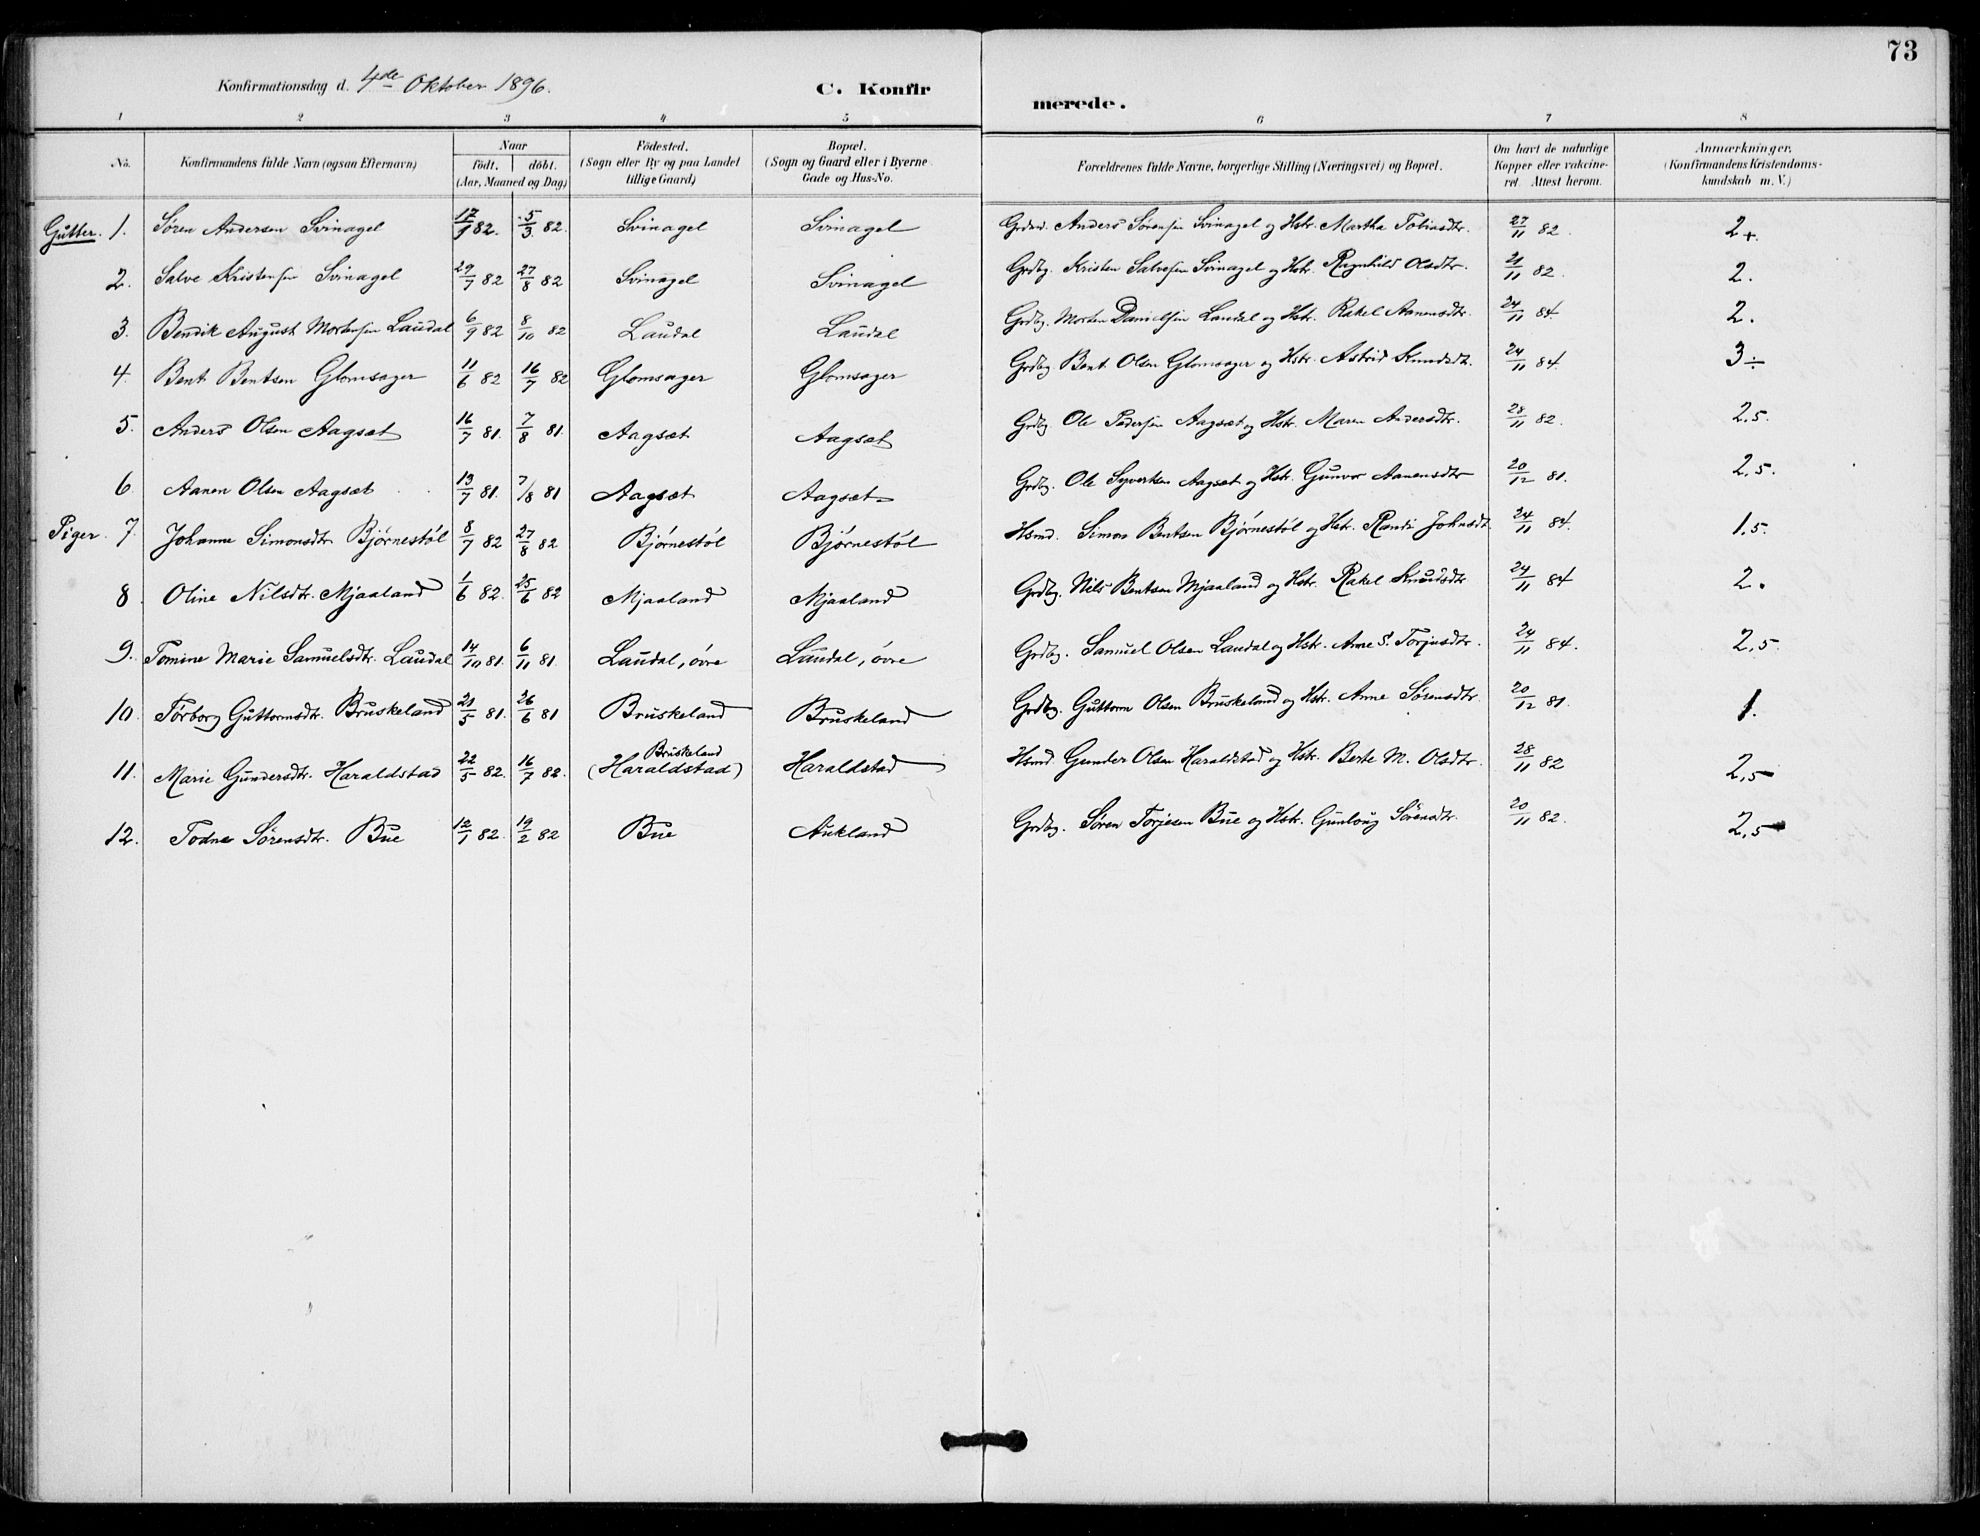 73
Konfirmationsdag d. 4de Oktober 1896. C. Konfirmerede.
1 2 3 4 5 6 7 8
No. Konfirmandens fulde Navn (ogsaa Efternavn) Naar født. døbt. (Aar, Maaned og Dag) Fødested. (Sogn eller By og paa Landet tillige Gaard) Bopæl. (Sogn og Gaard eller i Byerne Gade og Hus-No. Forældrenes fulde Navne, borgerlige Stilling (Næringsvei) og Bopæl. Om havt de naturlige Kopper eller vakcineret. Attest herom. Anmærkninger. (Konfirmandens Kristendomskundskab m. V.)
Gutter. 1. Søren Andersen Svinagel 17/1 82. 5/3 82. Svinagel Svinagel Anders Sørensen Svinagel og Hstr. Martha Tobiasdtr. 27/11 82. 2+.
2. Salve Kristensen Svinagel 29/7 82 27/8 82 Svinagel Svinagel Grdbg. Kristen Salvesen Svinagel og Hstr. Ragnhild Olsdtr. 21/11 82. 2.
3. Bendik August Mortensen Laudal 6/9 82 8/10 82 Laudal Laudal Grdbg. Morten Danielsen Laudal og Hstr. Rakel Aanensdtr. 24/11 84. 2.
4. Bent Bentsen Glomsager 11/6 82 16/7 82 Glomsager Glomsager Grdbg. Bent Olsen Glomsager og Hstr. Astrid Knudsdt. 24/11 84. 3÷
5. Anders Olsen Aagsæt 16/7 81. 7/8 81. Aagsæt Aagsæt Grdbg. Ole Pedersen Aagsæt og Hstr. Maren Andersdtr. 28/11 82. 2,5.
6. Aanen Olsen Aagsæt 13/7 81. 7/8 81 Aagsæt Aagsæt Grdbg. Ole Syvertsen Aagsæt og Hstr. Gunvor Aanensdtr 20/12 81. 2,5.
Piger. 7. Johanne Simonsdtr. Bjørnestøl 8/7 82 27/8 82 Bjørnestøl Bjørnestøl Hsmd. Simon Bentsen Bjørnestøl og Hstr. Randi Johnsdt. 24/11 84. 1,5.
8. Oline Nilsdtr. Mjaaland 1/6 82. 25/6 82 Mjaaland Mjaaland Grdbg. Nils Bentsen Mjaaland og Hstr. Rakel Knudsdtr. 24/11 84 2.
9. Tomine Marie Samuelsdtr. Laudal 14/10 81. 6/11 81. Laudal, øvre Laudal, øvre Grdbg. Samuel Olsen Laudal og Hstr. Anne S. Torjusdtr. 24/11 84. 2,5.
10. Torborg Guttormsdtr. Bruskeland 21/5 81. 26/6 81 Bruskeland Bruskeland Grdbg. Guttorm Olsen Bruskeland og Hstr. Anne Sørensdtr. 20/12 81. 1.
11. Marie Gundersdtr. Haraldstad 22/5 82. 16/7 82. Bruskeland (Haraldstad) Haraldstad Hsmd. Gunder Olsen Haraldstad og Hstr. Berte M. Olsdtr. 28/11 82 2,5
12. Todne Sørensdtr. Bue 12/1 82. 19/2 82 Bue Aukland Grdbg. Søren Torjesen Bue og Hstr. Gunloug Sørensdtr. 20/11 82. 2,5